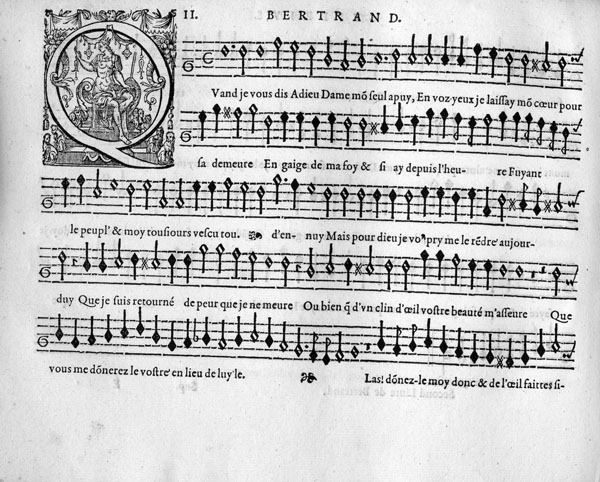 II. BERTRAND.
Q
Vand je vous dis Adieu Dame mõ seul apuy, En voz yeux je laissay mõ cœur pour
sa demeure En gaige de ma foy & si ay depuis l'heu- re Fuyant
le peupl' & moy tousiours vescu tou. d'en- nuy Mais pour dieu je vo' pry me le rẽdre' aujour-
duy Que je suis retourné de peur que je ne meure Ou bien q̃ d'vn clin d'œil vostre beauté m'asseure Que
vous me dõnerez le vostre' en lieu de luy' le. Las! dõnez-le moy donc & de l'œil faittes si-